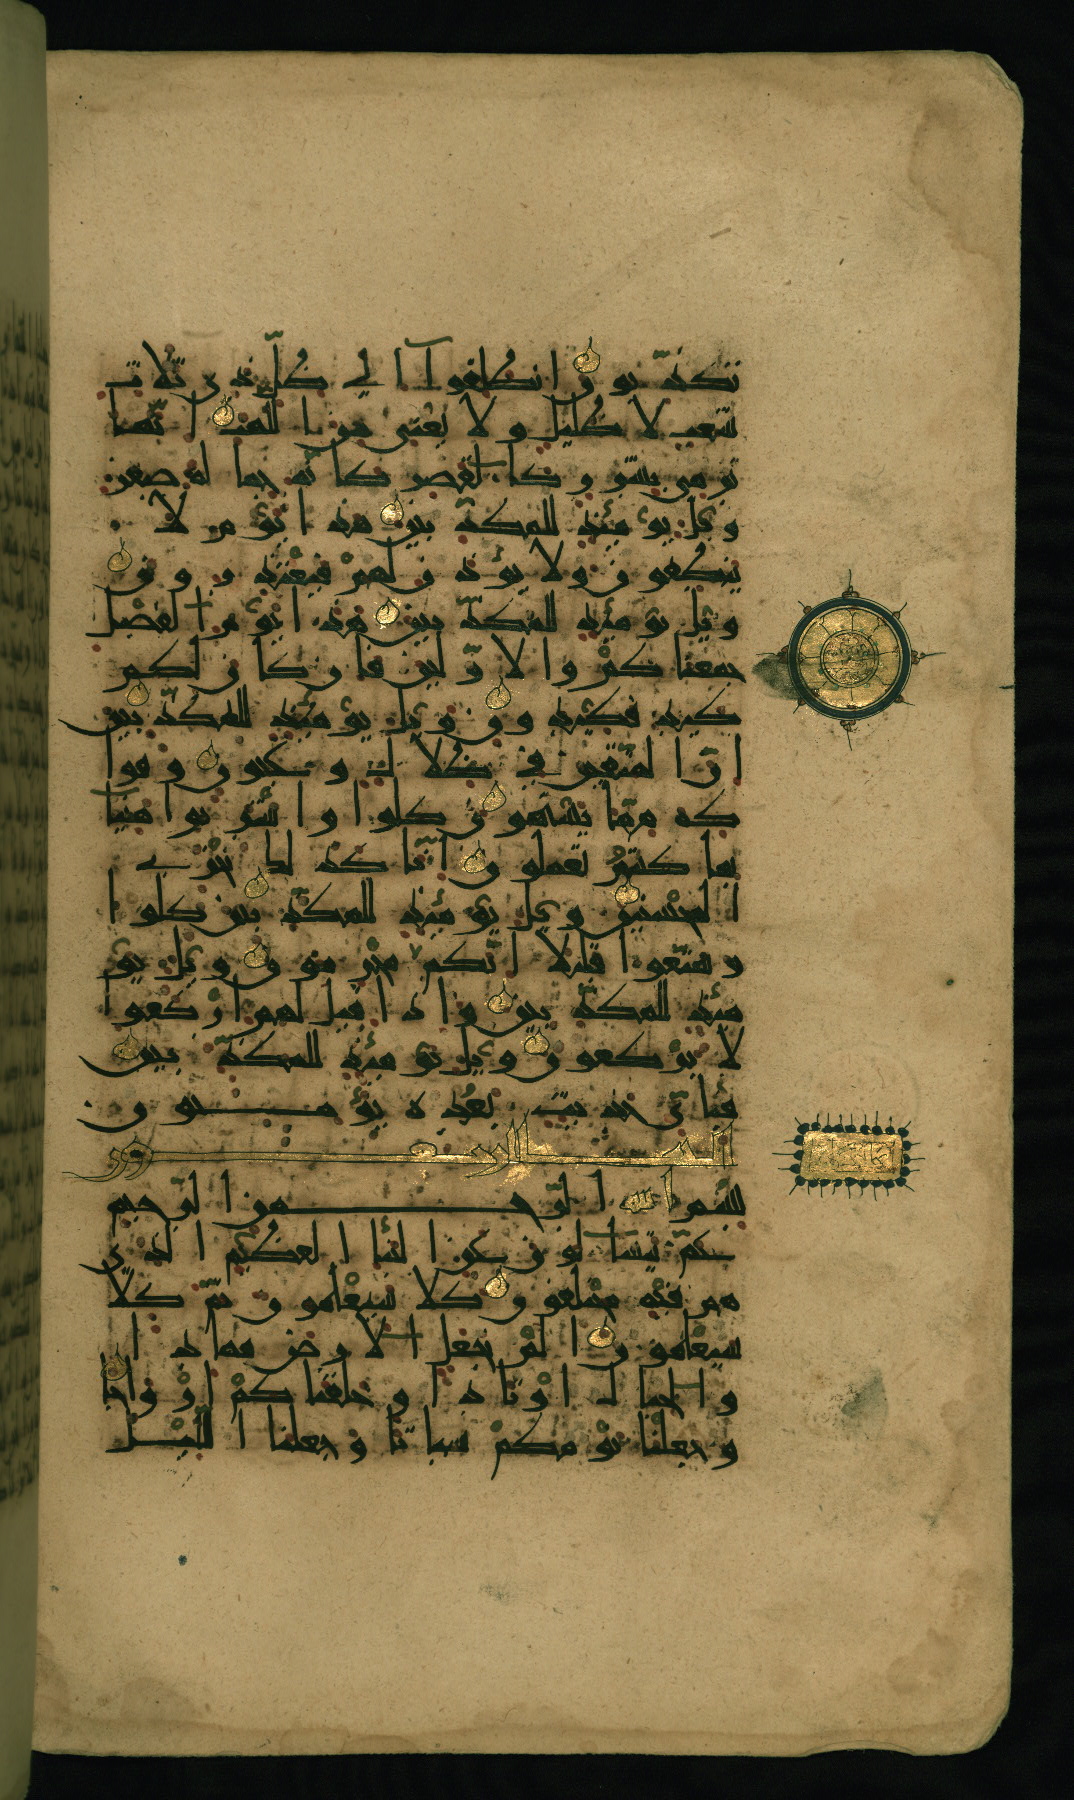 تكذبون انطلقوا الى ظل ذي ثلاث
شعب لا ظليل ولا يغني من اللهب انها
ترمي بشرر كالقصر كانه جمالة صفر
ويل يومئذ للمكذبين هذا يوم لا
ينطقون ولا يؤذن لهم فيعتذرون
ويل يومئذ للمكذبين هذا يوم الفصل
جمعناكم والاولين فان كان لكم
كيد فكيدون ويل يومئذ للمكذبين
ان المتقين في ظلال وعيون وفوا
كه مما يشتهون كلوا واشربوا هنيئا
بما كنتم تعملون انا كذلك نجزي
المحسنين ويل يومئذ للمكذبين كلوا
وتمتعوا قليلا انكم مجرمون ويل يو
مئذ للمكذبين واذا قيل لهم اركعوا
لا يركعون ويل يومئذ للمكذبين
فبأي حديث بعده يؤمنون
بسم الله الرحمن الرحيم
عم يتساءلون عن النبأ العظيم الذي
هم فيه مختلفون كلا سيعلمون ثم كلا
سيعلمون الم نجعل الارض مهادا
والجبال اوتادا وخلقناكم ازواجا
وجعلنا نومكم سباتا وجعلنا الليل